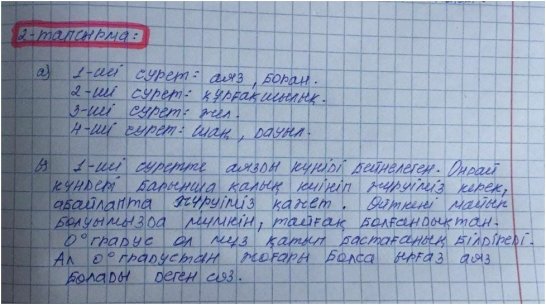 2-тапсырма:
а) 1-ші сурет: аяз, боран.
2-ші сурет: құрғақшылық.
3-ші сурет: жел.
4-ші сурет: шаң, дауыл.
в) 1-ші суретте аязды күнірі бейнелеген. Ондай
күндегі барынша қалық киініп жүруіміз керек,
абайлапта жүруіміз қажет. Өйткені майып
болуымызда мүмкін, тайғақ болғандықтан.
0° градус ол мұз қатып бастағанын білдіреді.
Ал 0° градустан жоғары болса ырғаз аяз
болады деген сөз.